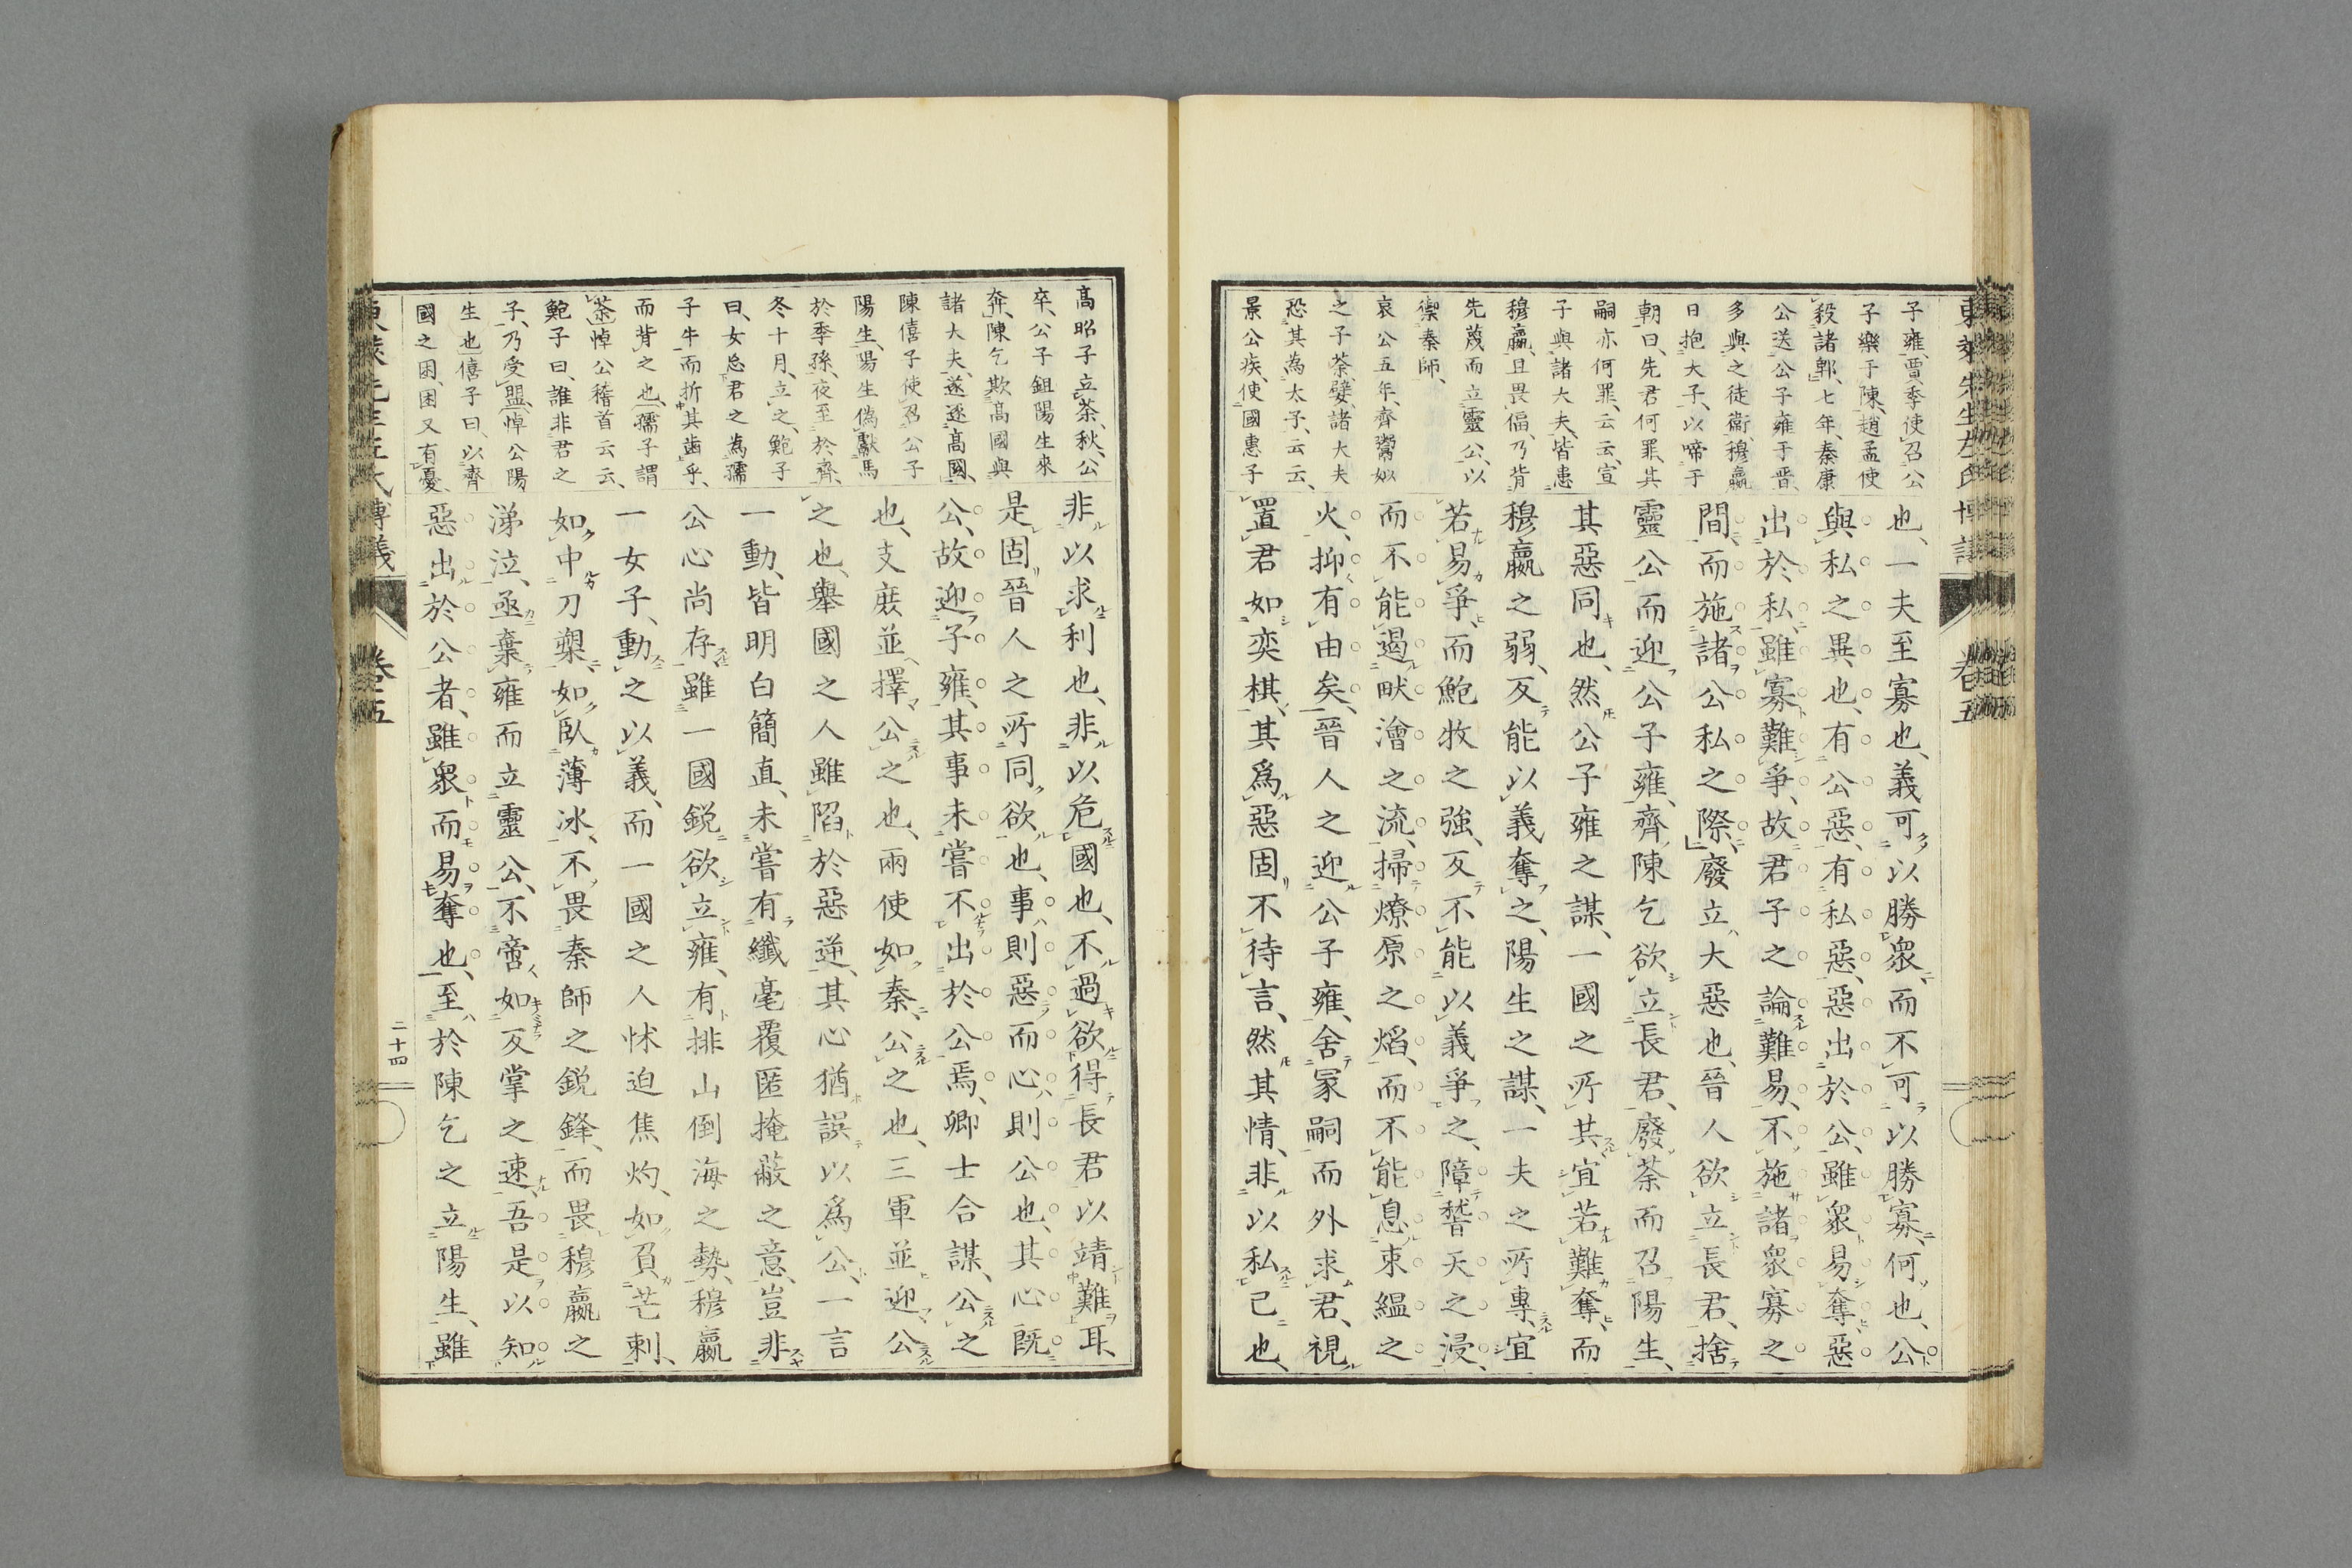 東萊先生左氏博議
卷五
子雍、賈季使召公
子樂于陳、趙孟使
殺諸郫、七年、秦康
公送公子雍于晋、
多與之徒衞、穆嬴
日抱大子、以啼于
朝曰、先君何罪、其
嗣亦何罪、云云、宣
子與諸大夫、皆患
穆嬴、且畏偪、乃背
先蔑而立靈公、以
禦秦師、
哀公五年、齊鬻姒
之子荼嬖、諸大夫
恐其為太子、云云、
景公疾、使國惠子
也、一夫至寡也、義可以勝衆、而不可以勝寡、何也、公
與私之異也、有公惡、有私惡、惡出於公、雖衆易奪、惡
出於私、雖寡難爭、故君子之論難易、不施諸衆寡之
間、而施諸公私之際、廢立大惡也、晉人欲立長君、捨
靈公而迎公子雍、齊陳乞欲立長君、廢荼而召陽生、
其惡同也、然公子雍之謀、一國之所共、宜若難奪、而
穆嬴之弱、反能以義奪之、陽生之謀、一夫之所專、宜
若易爭、而鮑牧之強、反不能以義爭之、障稽天之浸、
而不能遏畎澮之流、掃燎原之焰、而不能息束緼之
火、抑有由矣、晉人之迎公子雍、舍冢嗣而外求君、視
置君如奕棋、其爲惡固不待言、然其情、非以私己也、
高昭子立荼、秋、公
卒、公子鉏陽生來
奔、陳乞欺高國與
諸大夫、遂逐高國、
陳僖子使召公子
陽生、陽生偽獻馬
於季孫、夜至於齊、
冬十月、立之、鮑子
曰、女忘君之為孺
子牛而折其齒乎、
而背之也、孺子謂
荼、悼公稽首云云、
鮑子曰、誰非君之
子、乃受盟、悼公陽
生也、僖子曰、以齊
國之困、困又有憂、
非以求利也、非以危國也、不過欲得長君以靖難耳、
是固晉人之所同欲也、事則惡而心則公也、其心既
公、故迎子雍、其事未嘗不出於公焉、卿士合謀、公之
也、支庶並擇、公之也、兩使如秦、公之也、三軍並迎、公
之也、舉國之人雖陷於惡逆、其心猶誤以爲公、一言
一動、皆明白簡直、未嘗有纖毫覆匿掩蔽之意、豈非
公心尚存、雖一國鋭欲立雍、有排山倒海之勢、穆嬴
一女子、動之以義、而一國之人怵迫焦灼、如負芒刺、
如中刀槊、如臥薄冰、不畏秦師之鋭鋒、而畏穆嬴之
涕泣、亟棄雍而立靈公、不啻如反掌之速、吾是以知
惡出於公者、雖衆而易奪也、至於陳乞之立陽生、雖
二十四
卷五